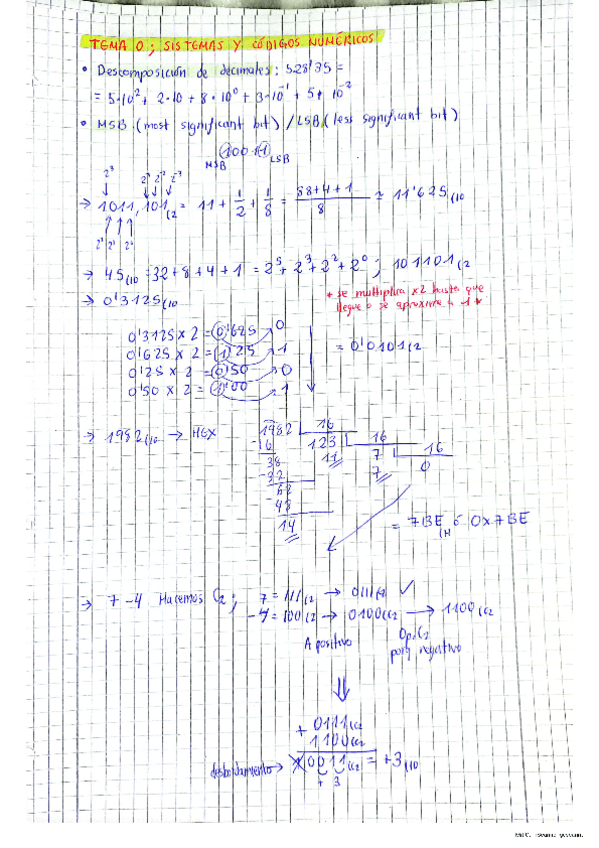 TEMA 0; SISTEMAS Y CÓDIGOS NUMÉRICOS
• Descomposición de decimales: 528'35 =
= 5·10² + 2·10 + 8·10⁰ + 3·10⁻¹ + 5· 10⁻²
• MSB (most significant bit) / LSB (less significant bit)
MSB LSB
→ 1011,101(2 = 11 + 1/2 + 1/8 = 88+4+1/8 = 11'625(10
→ 45(10 = 32+8+4+1 = 2⁵+2³+2²+2⁰; 101101(2
→ 0'3125(10
* se multiplica x2 hasta que
llegue o se aproxime a 1 *
0'3125 x 2 = 0'625 0
0'625 x 2 = 1'25 1
0'25 x 2 = 0'50 0
0'50 x 2 = 1'00 1
= 0'0101(2
→ 1982(10 → HEX
1982 16
-16 123 16
38 11 7 16
-32 7 0
62
-48
14
= 7BE(H ó 0x7BE
→ 7-4 Hacemos C2; 7 = 111(2 → 0111(2 ✓
-4 = 100(2 → 0100(2 → 1100(2
A positivo Op. C2
negativo
⇓
+ 0111(2
1100(2
desbordamiento → 10011(2 = +3(10
+ 3